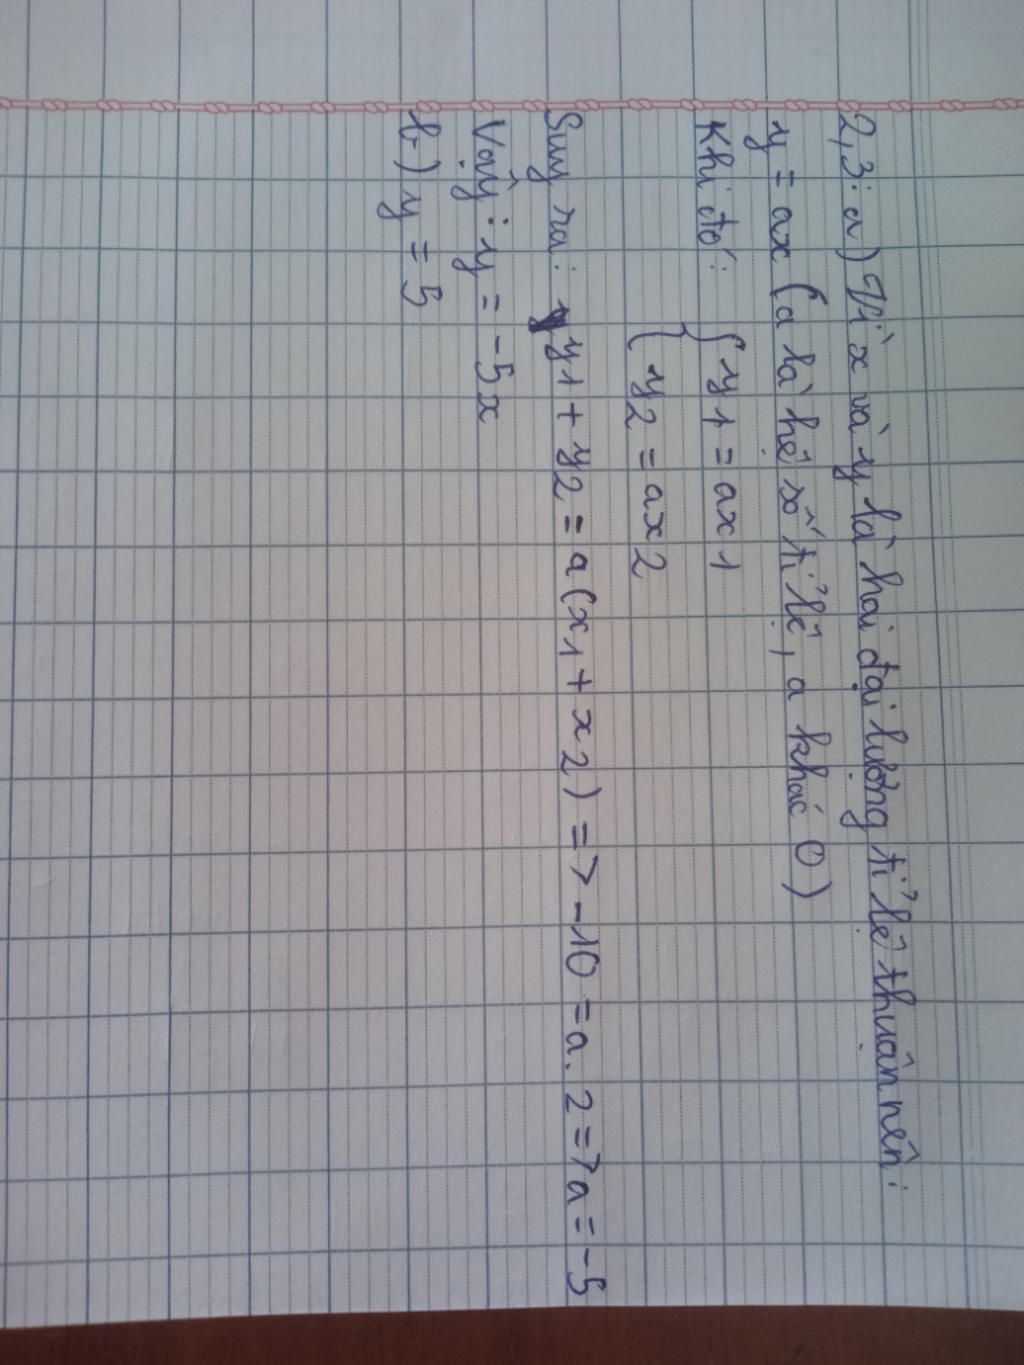 2,3: a) Vì x và y là hai đại lượng tỉ lệ thuận nên:
y = ax (a là hệ số tỉ lệ, a khác 0)
Khi đó: { y1 = ax1
y2 = ax2
Suy ra: y1 + y2 = a(x1 + x2) => -10 = a. 2 => a = -5
Vậy: y = -5x
b) y = 5